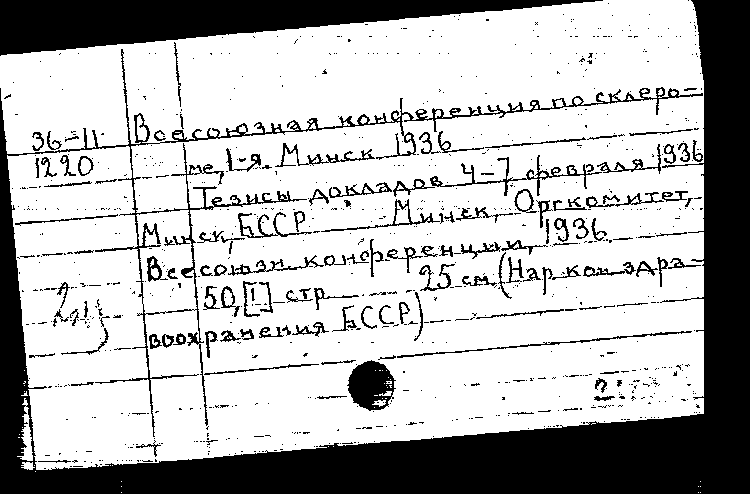 36-11
1220
Всесоюзная конференция по склеро-
ме, 1-я. Минск 1936
Тезисы докладов 4-7 февраля 1936
Минск, БССР Минск, Оргкомитет,
Всесоюзн. конференции, 1936.
50, [1] стр 25 см (Нар ком здра-
воохранения БССР)